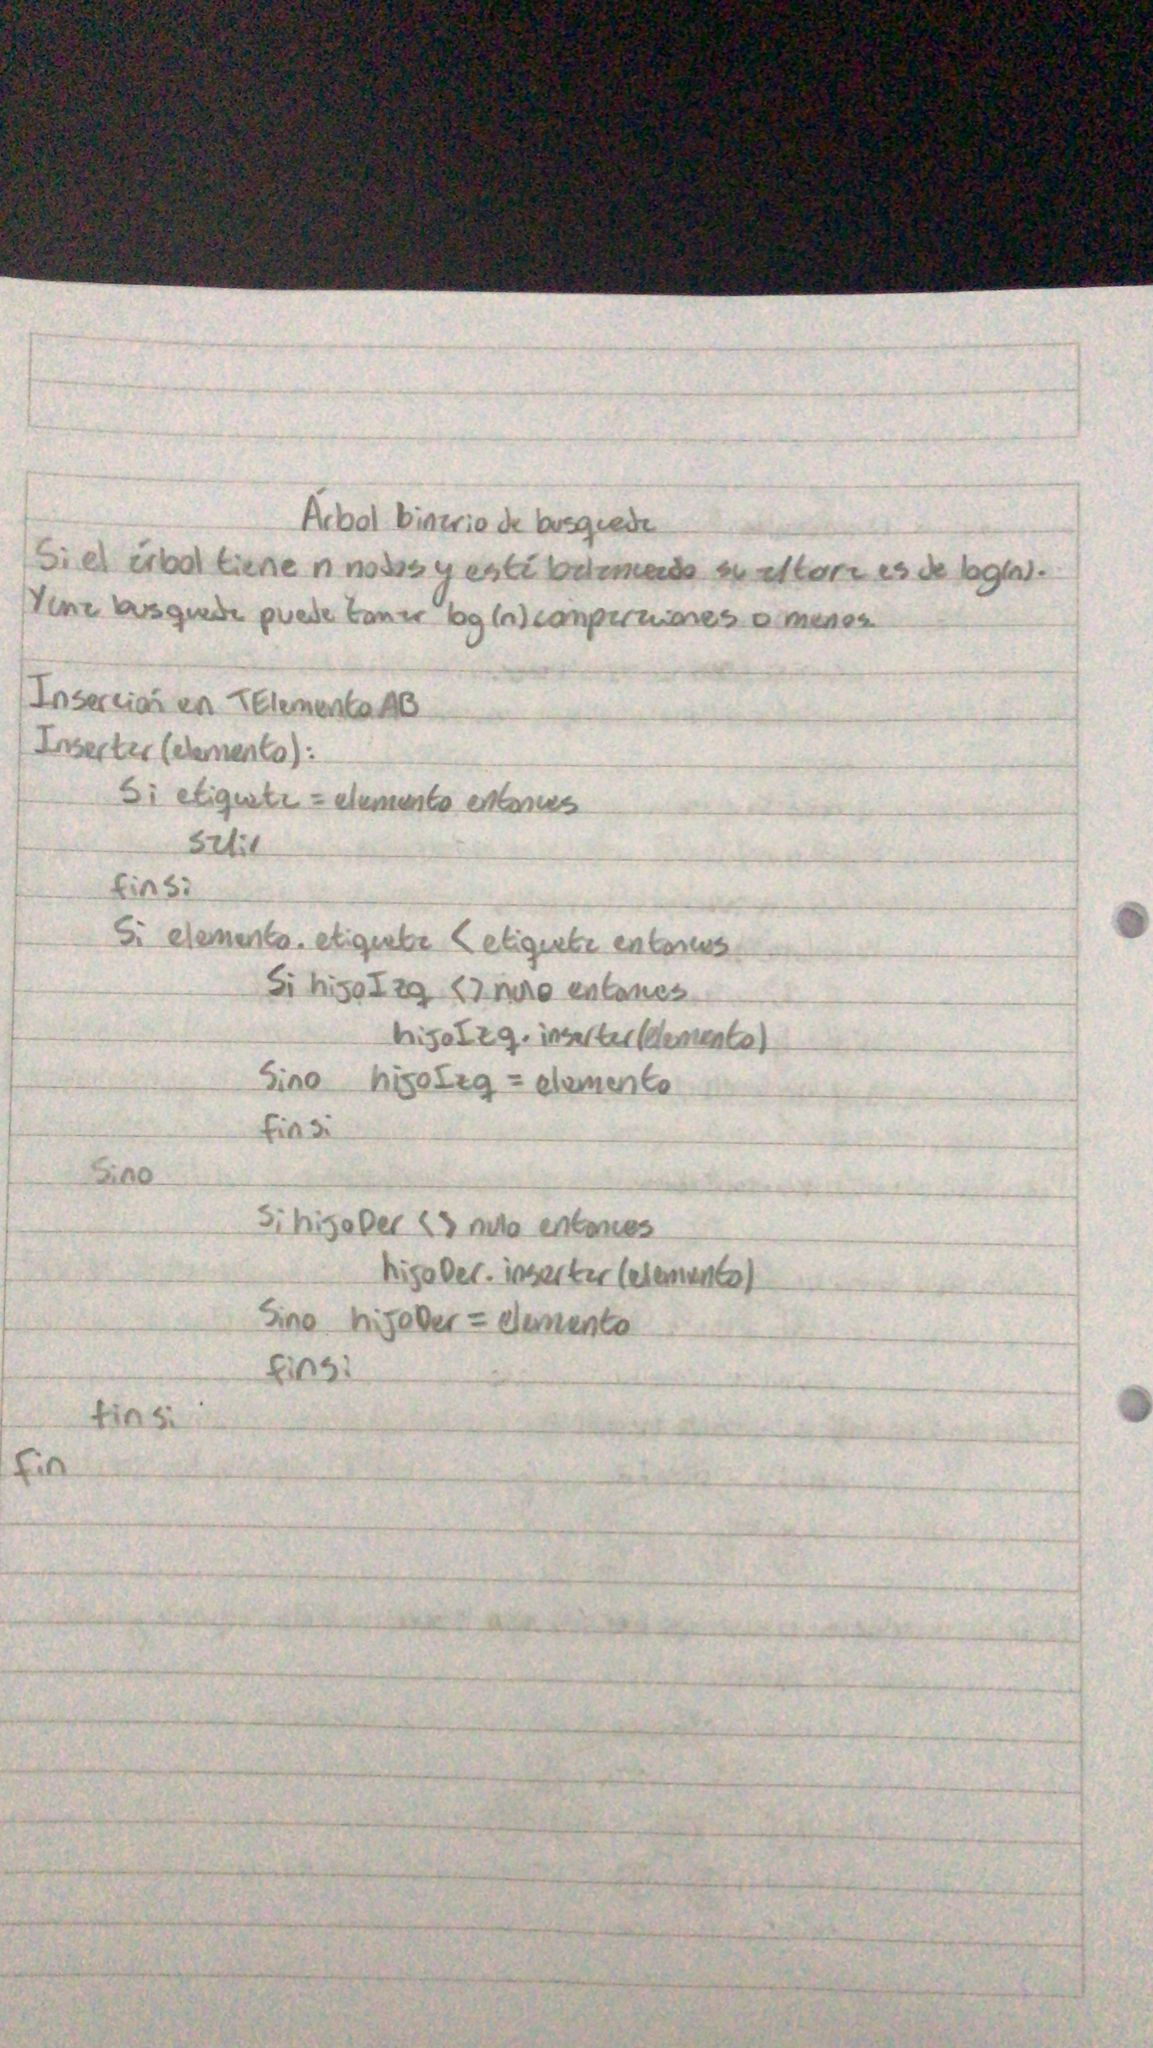 Árbol binario de busqueda
Si el árbol tiene n nodos y está balanceado su altura es de log(n).
Y una busqueda puede tomar log(n) comparaciones o menos
Inserción en TElementoAB
Insertar(elemento):
Si etiqueta = elemento entonces
salir
finsi
Si elemento.etiqueta < etiqueta entonces
Si hijoIzq <> nulo entonces
hijoIzq.insertar(elemento)
Sino hijoIzq = elemento
finsi
Sino
Si hijoDer <> nulo entonces
hijoDer.insertar(elemento)
Sino hijoDer = elemento
finsi
finsi
fin